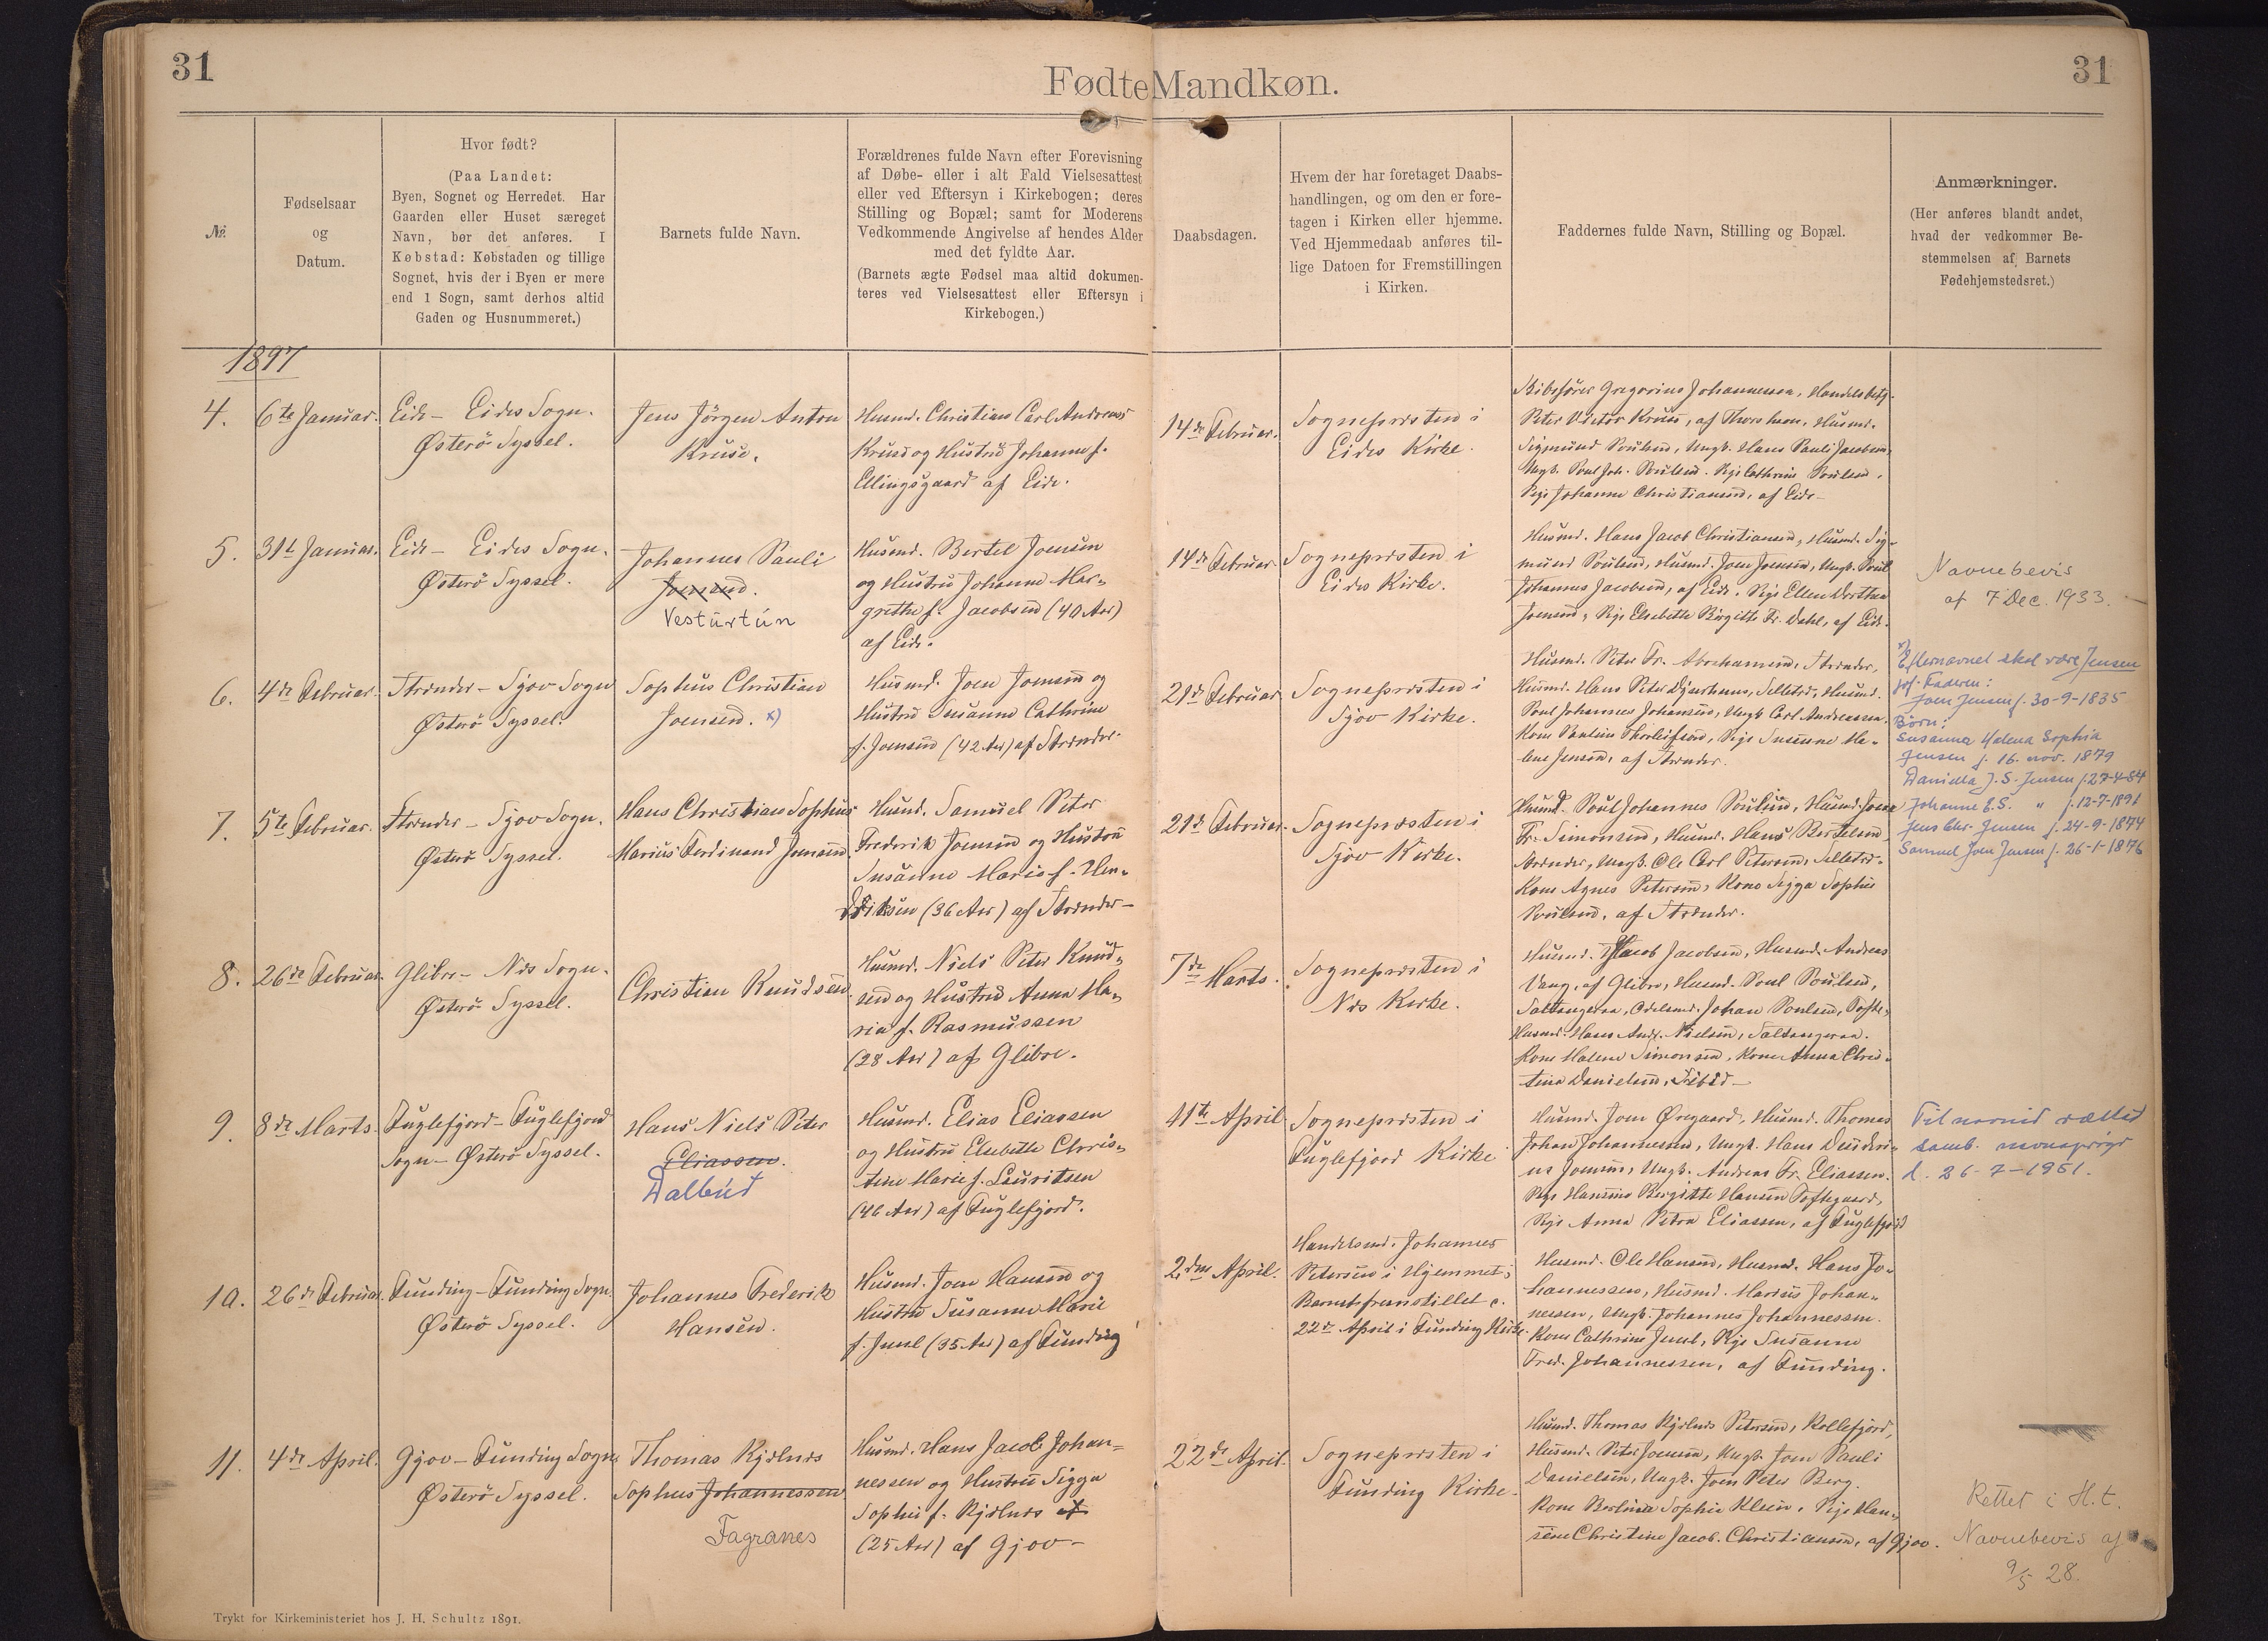 31
31
Fødte Mandkøn.
№
Fødselsaar
og
Datum.
Hvor født?
(Paa Landet:
Byen, Sognet og Herredet. Har
Gaarden eller Huset særeget
Navn, bør det anføres. I
Købstad: Købstaden og tillige
Sognet, hvis der i Byen er mere
end 1 Sogn, samt derhos altid
Gaden og Husnummeret.)
Barnets fulde Navn.
Forældrenes fulde Navn efter Forevisning
af Døbe- eller i alt Fald Vielsesattest
eller ved Eftersyn i Kirkebogen; deres
Stilling og Bopæl; samt for Moderens
Vedkommende Angivelse af hendes Alder
med det fyldte Aar.
(Barnets ægte Fødsel maa altid dokumen-
teres ved Vielsesattest eller Eftersyn i
Kirkebogen.)
Daabsdagen.
Hvem der har foretaget Daabs-
handlingen, og om den er fore-
tagen i Kirken eller hjemme.
Ved Hjemmedaab anføres til-
lige Datoen for Fremstillingen
i Kirken.
Faddernes fulde Navn, Stilling og Bopæl.
Anmærkninger.
(Her anføres blandt andet,
hvad der vedkommer Be-
stemmelsen af Barnets
Fødehjemstedsret.)
1897
4.
6te Januar.
Eide - Eides Sogn.
Østerö Syssel.
Jens Jörgen Anton
Kruse.
Husmd. Christian Carl Andreas
Kruse og Hustru Johanne f.
Ellingsgaard af Eide.
14de Februar.
Sognepræsten i
Eides Kirke.
Skibsfører Gregorius Johannessen, Handelsbetj.
Peter Victor Kruse, af Thorshavn, Husmd.
Sigmund Poulsen, Ungk. Hans Pauli Jacobsen,
Ungk. Poul Joh. Poulsen. Pige Cathrine Poulsen,
Pige Johanne Christiansen, af Eide -
5.
31te Januar.
Eide - Eides Sogn.
Østerö Syssel.
Johannes Pauli
Joensen.
Vestúrtún
Husmd. Bertel Joensen
og Hustru Johanne Mar-
grethe f. Jacobsen (40 Aar)
af Eide.
14de Februar
Sognepræsten i
Eides Kirke.
Husmd. Hans Jacob Christiansen, Husmd. Sig-
mund Poulsen, Husmd. Joen Joensen, Ungk. Poul
Johannes Jacobsen, af Eide. Pige Ellen Dorthea
Joensen, Pige Elsebeth Birgitte Fr. Dahl, af Eide.
Navnebevis
af 7 Dec. 1933.
6.
4de Februar.
Strænder - Sjov Sogn
Østerö Syssel.
Sophus Christian
Joensen. x)
Husmd. Joen Joensen og
Hustru Susanne Cathrine
f. Joensen (42 Aar) af Strænder.
21de Februar
Sognepræsten i
Sjov Kirke.
Husmd. Peter Fr. Abrahamsen, Strænder,
Husmd. Hans Peter Djurhuus, Selletræ, Husmd.
Poul Johannes Johansen, Ungk Carl Andreassen.
Kone Pauline Thorleifsen, Pige Susanne He-
lene Jensen, af Strænder.
x)
Efternavnet skal være Jensen
jvf. Faderen:
Joen Jensen f. 30-9-1835
Børn:
Susanna Malena Sophia
Jensen f. 16. nov. 1879
Daniella J. S. Jensen f. 27-4-84
Johanne E. S. " f. 12-7-1891
Jens Chr. Jensen f. 24-9-1874
Samuel Joen Jensen f. 26-1-1876
7.
5te Februar.
Strænder - Sjov Sogn.
Østerö Syssel.
Hans Christian Sophus
Marius Ferdinand Joensen
Husmd. Samuel Peter
Frederik Joensen og Hustru
Susanne Marie f. Hen-
driksen (36 Aar) af Strænder -
21de Februar.
Sognepræsten i
Sjov Kirke.
Husmd. Poul Johannes Poulsen, Husmd. Joen
Fr. Simonsen, Husmd. Hans Bertelsen
Strænder, Ungk. Ole Carl Petersen, Selletræ.
Kone Agnes Petersen, Kone Sigga Sophie
Poulsen, af Strænder.
8.
26de Februar.
Glibre - Næs Sogn.
Østerö Syssel.
Christian Knudsen
Husmd. Niels Peter Knud-
sen og Hustru Anna Ma-
ria f. Rasmussen
(28 Aar) af Glibre.
7de Marts.
Sognepræsten i
Næs Kirke.
Husmd. Jacob Jacobsen, Husmd. Andreas
Vang, af Glibre, Husmd. Poul Poulsen,
Saltangeraa, Odelsmd. Johan Poulsen, Tofte,
Husmd. Hans Andr. Nielsen, Saltangeraa.
Kone Malene Simonsen, Kone Anna Chris-
tina Danielsen,
9.
8de Marts.
Fuglefjord - Fuglefjord
Sogn - Østerö Syssel.
Hans Niels Peter
Eliassen.
Dalbúð
Husmd. Elias Eliassen
og Hustru Elsebeth Chris-
tine Marie f. Lauritsen
(46 Aar) af Fuglefjord.
11te April
Sognepræsten i
Fuglefjord Kirke
Husmd. Joen Øregaard, Husmd. Thomas
Johan Johannessen, Ungk. Hans
Joensen, Ungk. Andreas Fr. Eliassen.
Pige Hansine Birgitte Hansen Toftegaard,
Pige Anna Petra Eliassen, af Fuglefjord
Tilnavnid rættað
samb.
d. 26-7-1951.
10.
26de Februar.
Funding - Funding Sogn
Østerö Syssel.
Johannes Frederik
Hansen.
Husmd. Joen Hansen og
Hustru Susanne Marie
f. Juul (35 Aar) af Funding
2den April.
Handelsmd. Johannes
Petersen i Hjemmet;
Barnet fremstillet d.
22de April i Funding Kirke.
Husmd. Ole Hansen, Husmd. Hans Jo-
hannessen, Husmd. Marius Johan-
nessen, Ungk. Johannes Johannessen.
Kone Cathrine Juul, Pige Susanne
Fred. Johannessen, af Funding.
11.
4de April.
Gjov - Funding Sogn
Østerö Syssel.
Thomas Kjølnes
Sophus Johannessen
Fagranes
Husmd. Hans Jacob Johan-
nessen og Hustru Sigga
Sophie f. Kjølnes af
(25 Aar) af Gjov -
22de April.
Sognepræsten i
Funding Kirke.
Husmd. Thomas Kjølnes Petersen, Kollefjord,
Husmd. Peter Joensen, Ungk. Joen Pauli
Danielsen, Ungk. Joen Peter Berg.
Kone Berlina Sophie Klein, Pige Han-
sine Christine Jacob. Christiansen, af Gjov.
Rettet i H.t.
Navnebevis af
9/5 28.
Trykt for Kirkeministeriet hos J. H. Schultz 1891.